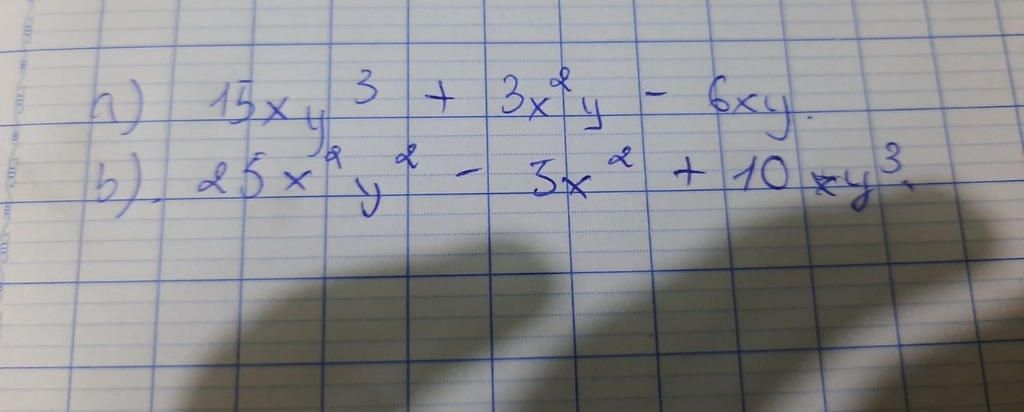 a) 15xy³ + 3x²y - 6xy.
b). 25x²y² - 5x² + 10xy³.